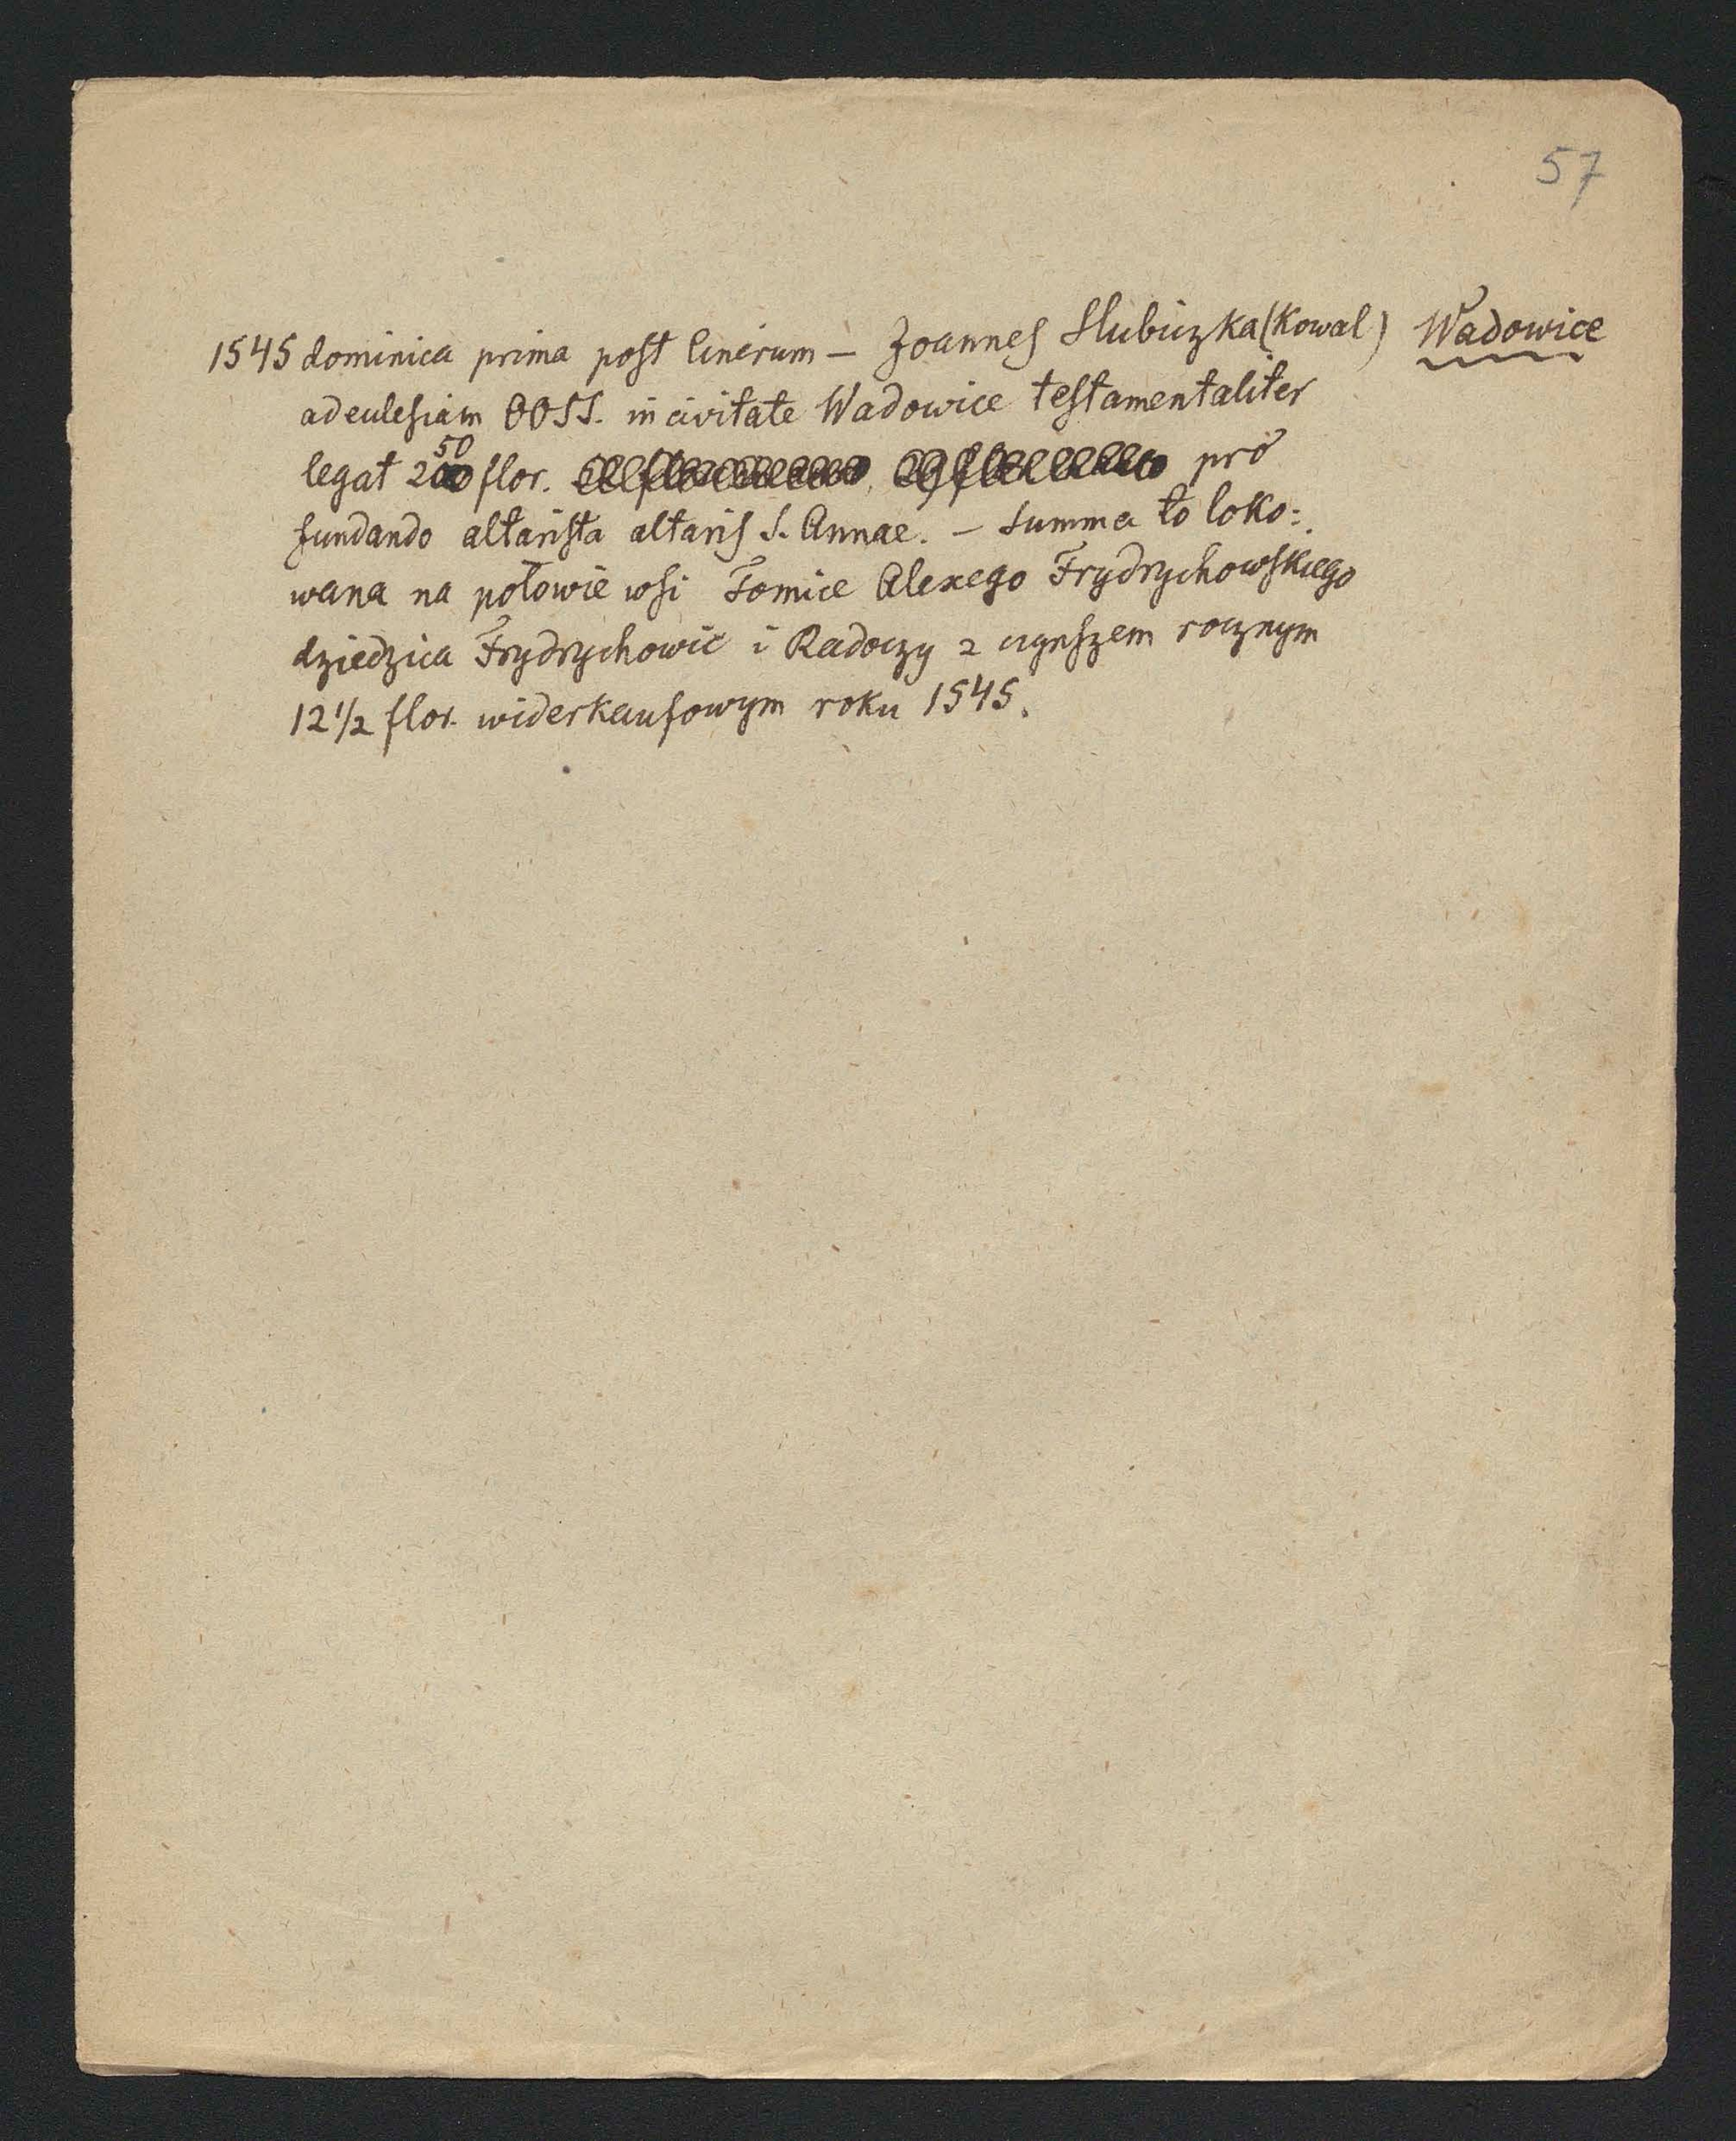 57
1545 dominica prima post Cinerum — Joannes Slubiczka (Kowal) Wadowice
ad ecclesiam OOSS. in civitate Wadowice testamentaliter
legat 250 flor. pro
fundando altarista altaris S. Annae. — Summa to loko=
wana na połowie wsi Tomice Alexego Frydrychowskiego
dziedzica Frydrychowic i Radoczy z czynszem rocznym
12 1/2 flor. widerkaufowym roku 1545.